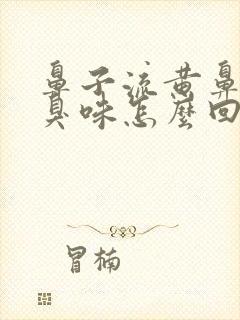 鼻子流黄鼻
臭味怎麼回
冒楠